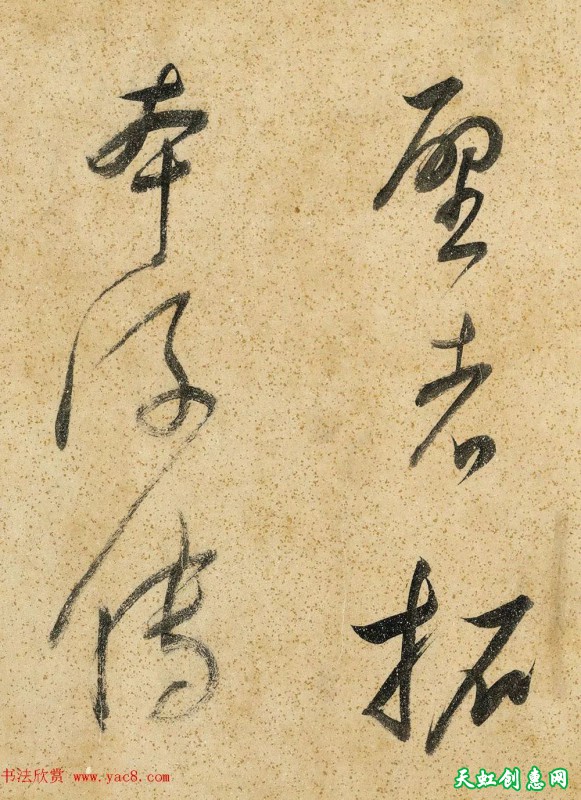 者拓
本傳
书法欣赏 www.yac8.com
天虹创惠网